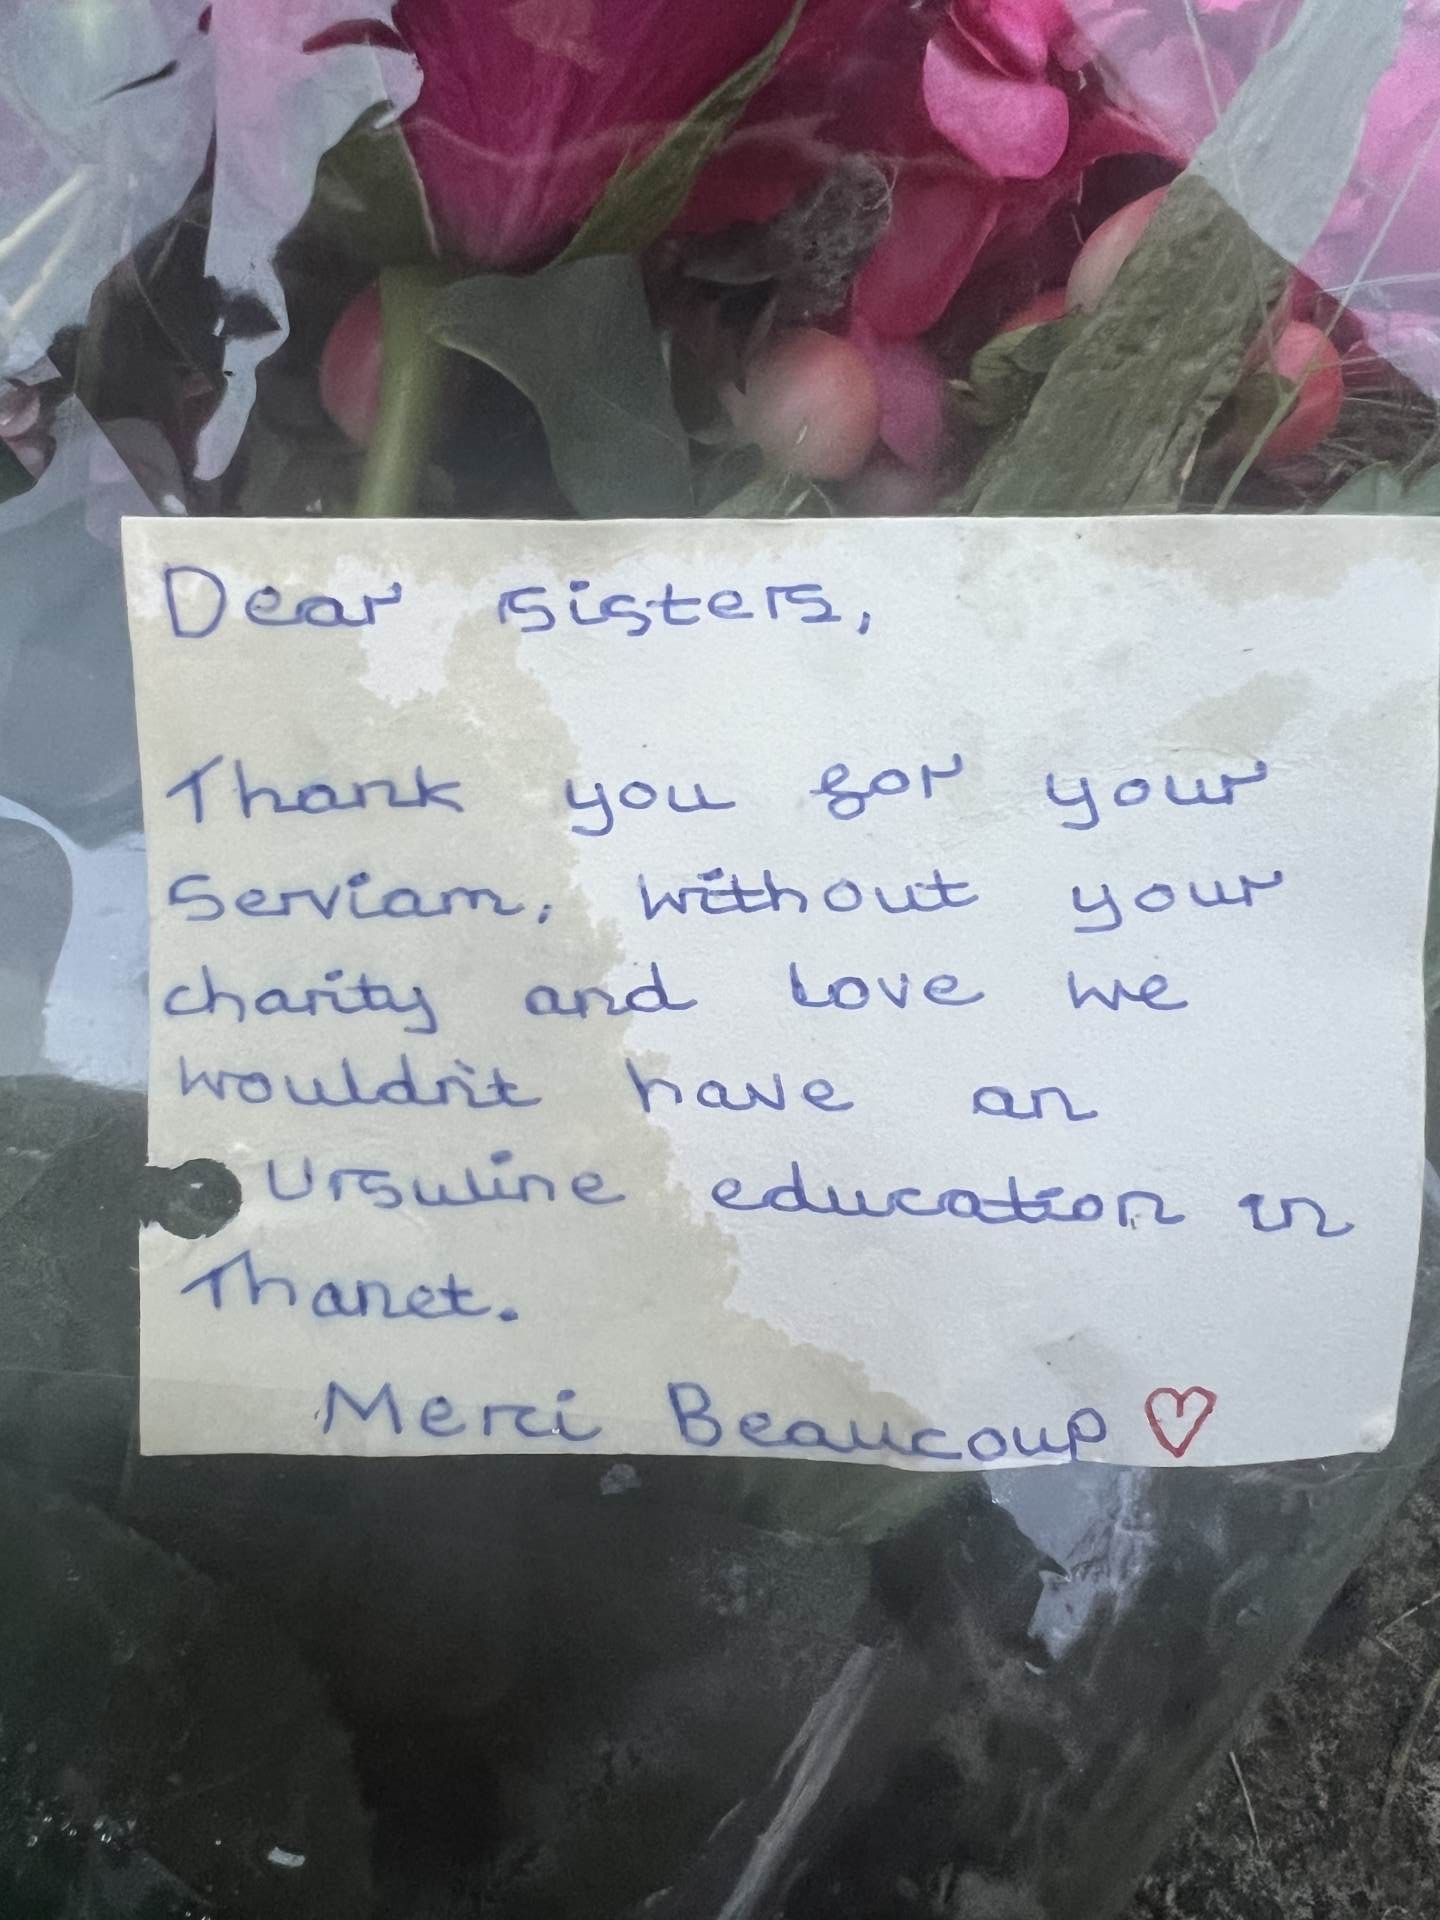 Dear sisters,
Thank you for your
Serviam, without your
charity and love we
wouldn't have an
Ursuline education in
Thanet.
Merci Beaucoup ♡